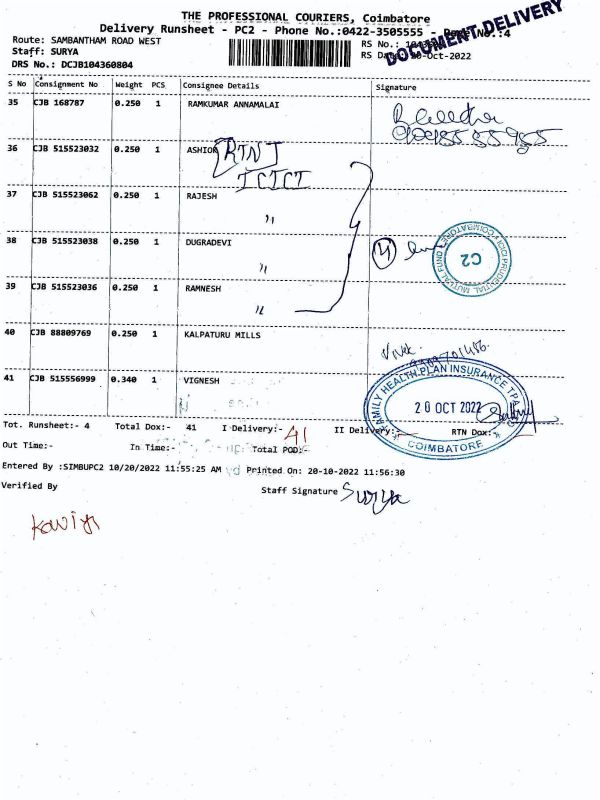 THE PROFESSIONAL COURIERS, Coimbatore
Delivery Runsheet - PC2 - Phone No.:0422-3505555 - No.:4
DOCUMENT DELIVERY
Route: SAMBANTHAM ROAD WEST
RS No.:
Staff: SURYA
RS Date: -Oct-2022
DRS No.: DCJB104360804
S No Consignment No Weight PCS Consignee Details Signature
35 CJB 168787 0.250 1 RAMKUMAR ANNAMALAI
36 CJB 515523032 0.250 1 ASHIOK RTNJ
ICICI
37 CJB 515523062 0.250 1 RAJESH
"
38 CJB 515523038 0.250 1 DUGRADEVI
"
(4)
ICICI PRUDENTIAL MUTUAL FUND COIMBATORE
C2
39 CJB 515523036 0.250 1 RAMNESH
"
40 CJB 88809769 0.250 1 KALPATURU MILLS
41 CJB 515556999 0.340 1 VIGNESH
FAMILY HEALTH PLAN INSURANCE TPA
20 OCT 2022
COIMBATORE
Tot. Runsheet:- 4 Total Dox:- 41 I Delivery:- 41 II Delivery:- RTN Dox:-
Out Time:- In Time:- Total POD:-
Entered By :SIMBUPC2 10/20/2022 11:55:25 AM Printed On: 20-10-2022 11:56:30
Verified By Staff Signature Surya